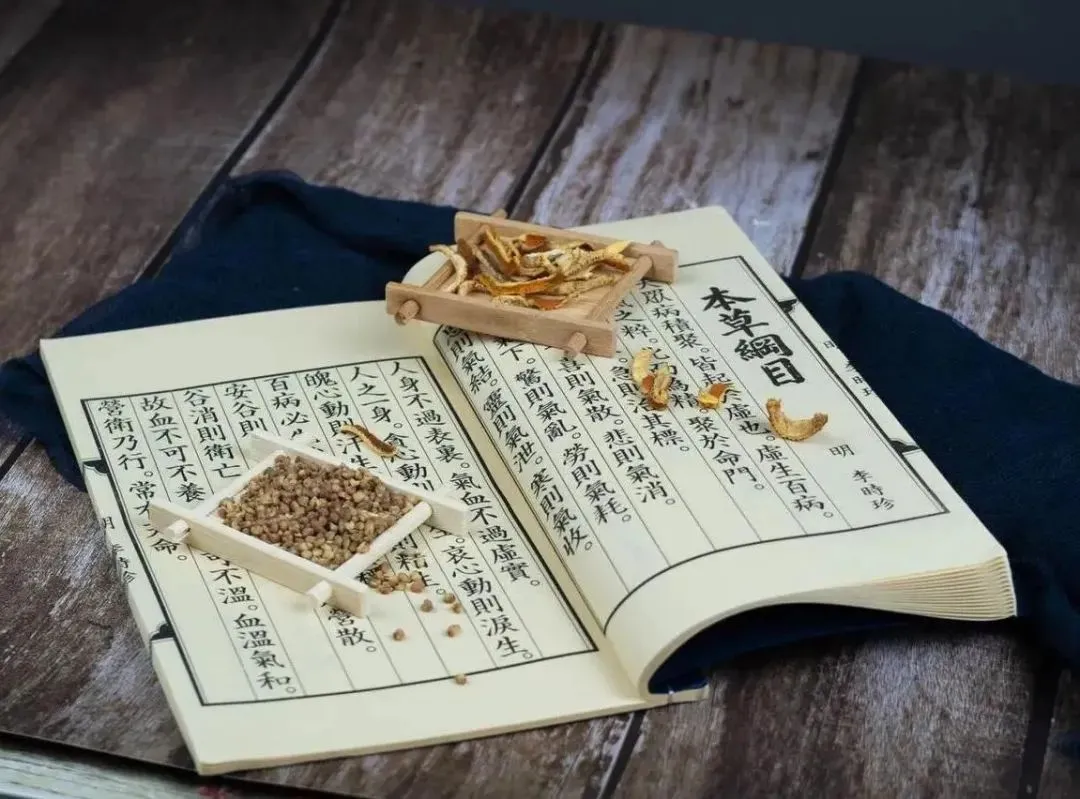 本草綱目
明 李時珍
病積聚。皆於虛也。虛生百病。
之粹。聚於命門。
急則治其標。
喜則氣散。悲則氣消。
下。驚則氣亂。勞則氣耗。
則氣結。靈則氣泄。寒則氣收。
人身不過表裏。氣血不過虛實。
人之一身。貪心動生。哀心動則淚生。
魄心動則精生。
百病必營散。
安谷則
谷消則衛亡
故血不可不養不溫。血溫氣和。
營衛乃行。常天命。
明 李時珍